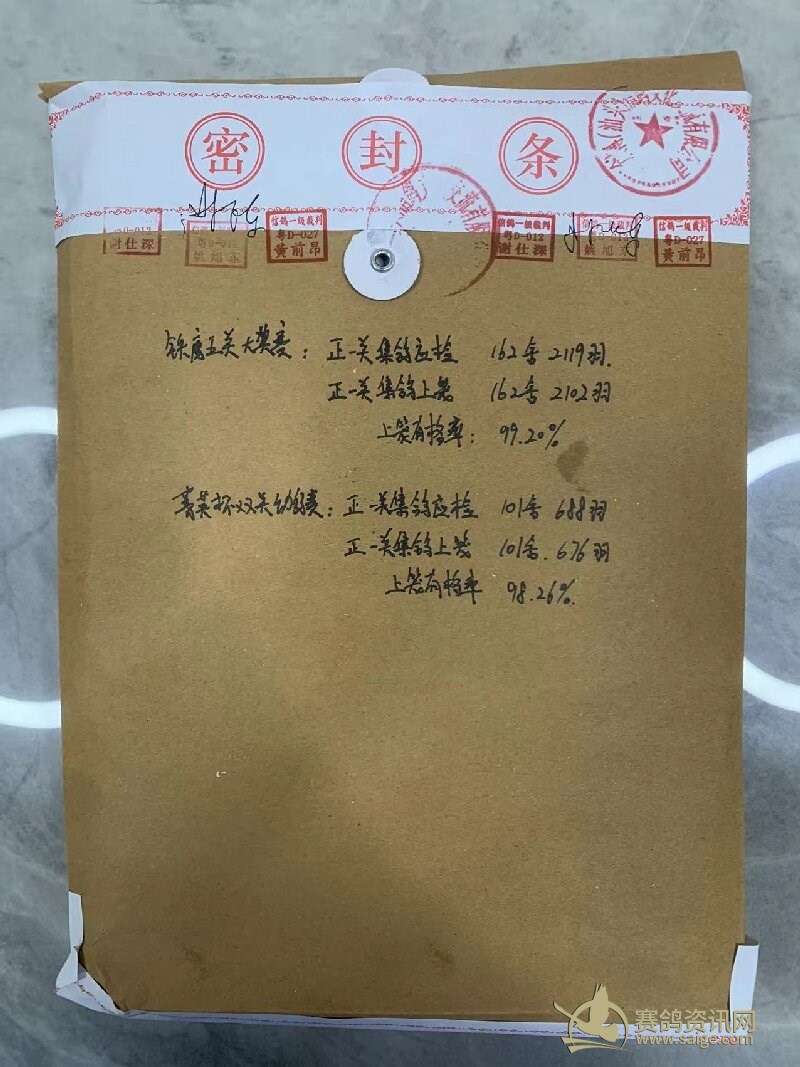 密 封 条
有限公司
D-012
谢仕深
D-011
姚旭东
信鸽一级裁判
粤D-027
黄前昂
信鸽一级裁判
粤D-012
谢仕深
姚旭东
信鸽一级裁判
粤D-027
黄前昂
五关大奖赛：正一关集鸽应检 162舍 2119羽.
正一关集鸽上笼 162舍 2102羽
上笼有格率：99.20%
菁英杯双关幼鸽赛：正一关集鸽应检 101舍 688羽
正一关集鸽上笼 101舍.676羽
上笼有格率 98.26%.
赛鸽资讯网
www.saige.com